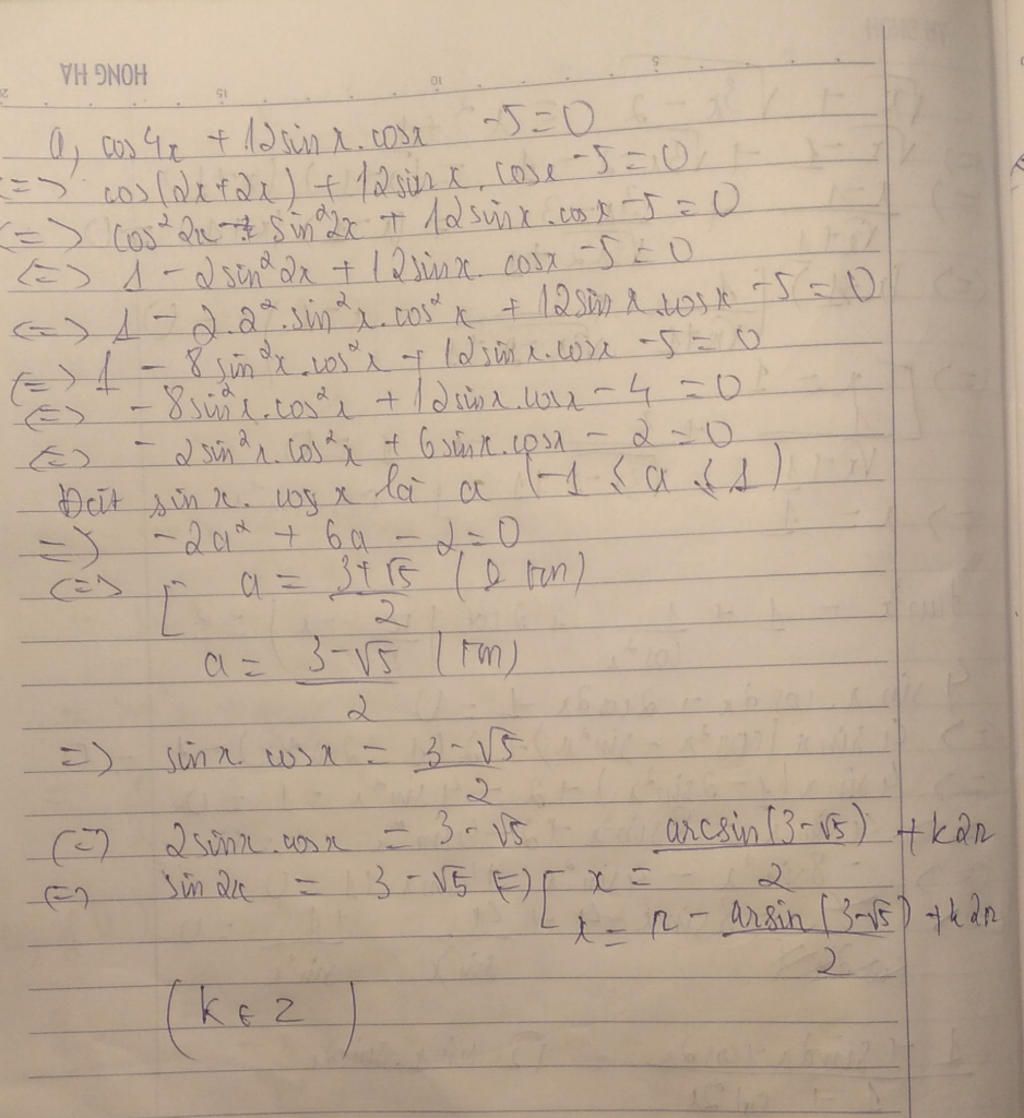 HONG HA
5 10 15 20
a, cos4x + 12sinx.cosx -5=0
=> cos(2x+2x) + 12sinx.cosx -5=0
<=> cos²2x - sin²2x + 12sinx.cosx -5=0
<=> 1 - 2sin²2x + 12sinx.cosx -5=0
<=> 1 - 2.2².sin²x.cos²x + 12sinx.cosx -5=0
<=> 1 - 8sin²x.cos²x + 12sinx.cosx -5=0
<=> -8sin²x.cos²x + 12sinx.cosx - 4 =0
<=> -2sin²x.cos²x + 6sinx.cosx - 2=0
Đặt sinx.cosx là a (-1 ≤ a ≤ 1)
=> -2a² + 6a - 2=0
<=> [ a = (3+√5)/2
a = (3-√5)/2 (tm)
=> sinx.cosx = (3-√5)/2
<=> 2sinx.cosx = 3-√5
<=> sin2x = 3-√5 <=> [ x = arcsin(3-√5)/2 + k2π
x = π - arsin(3-√5)/2 + k2π
(k ∈ Z)